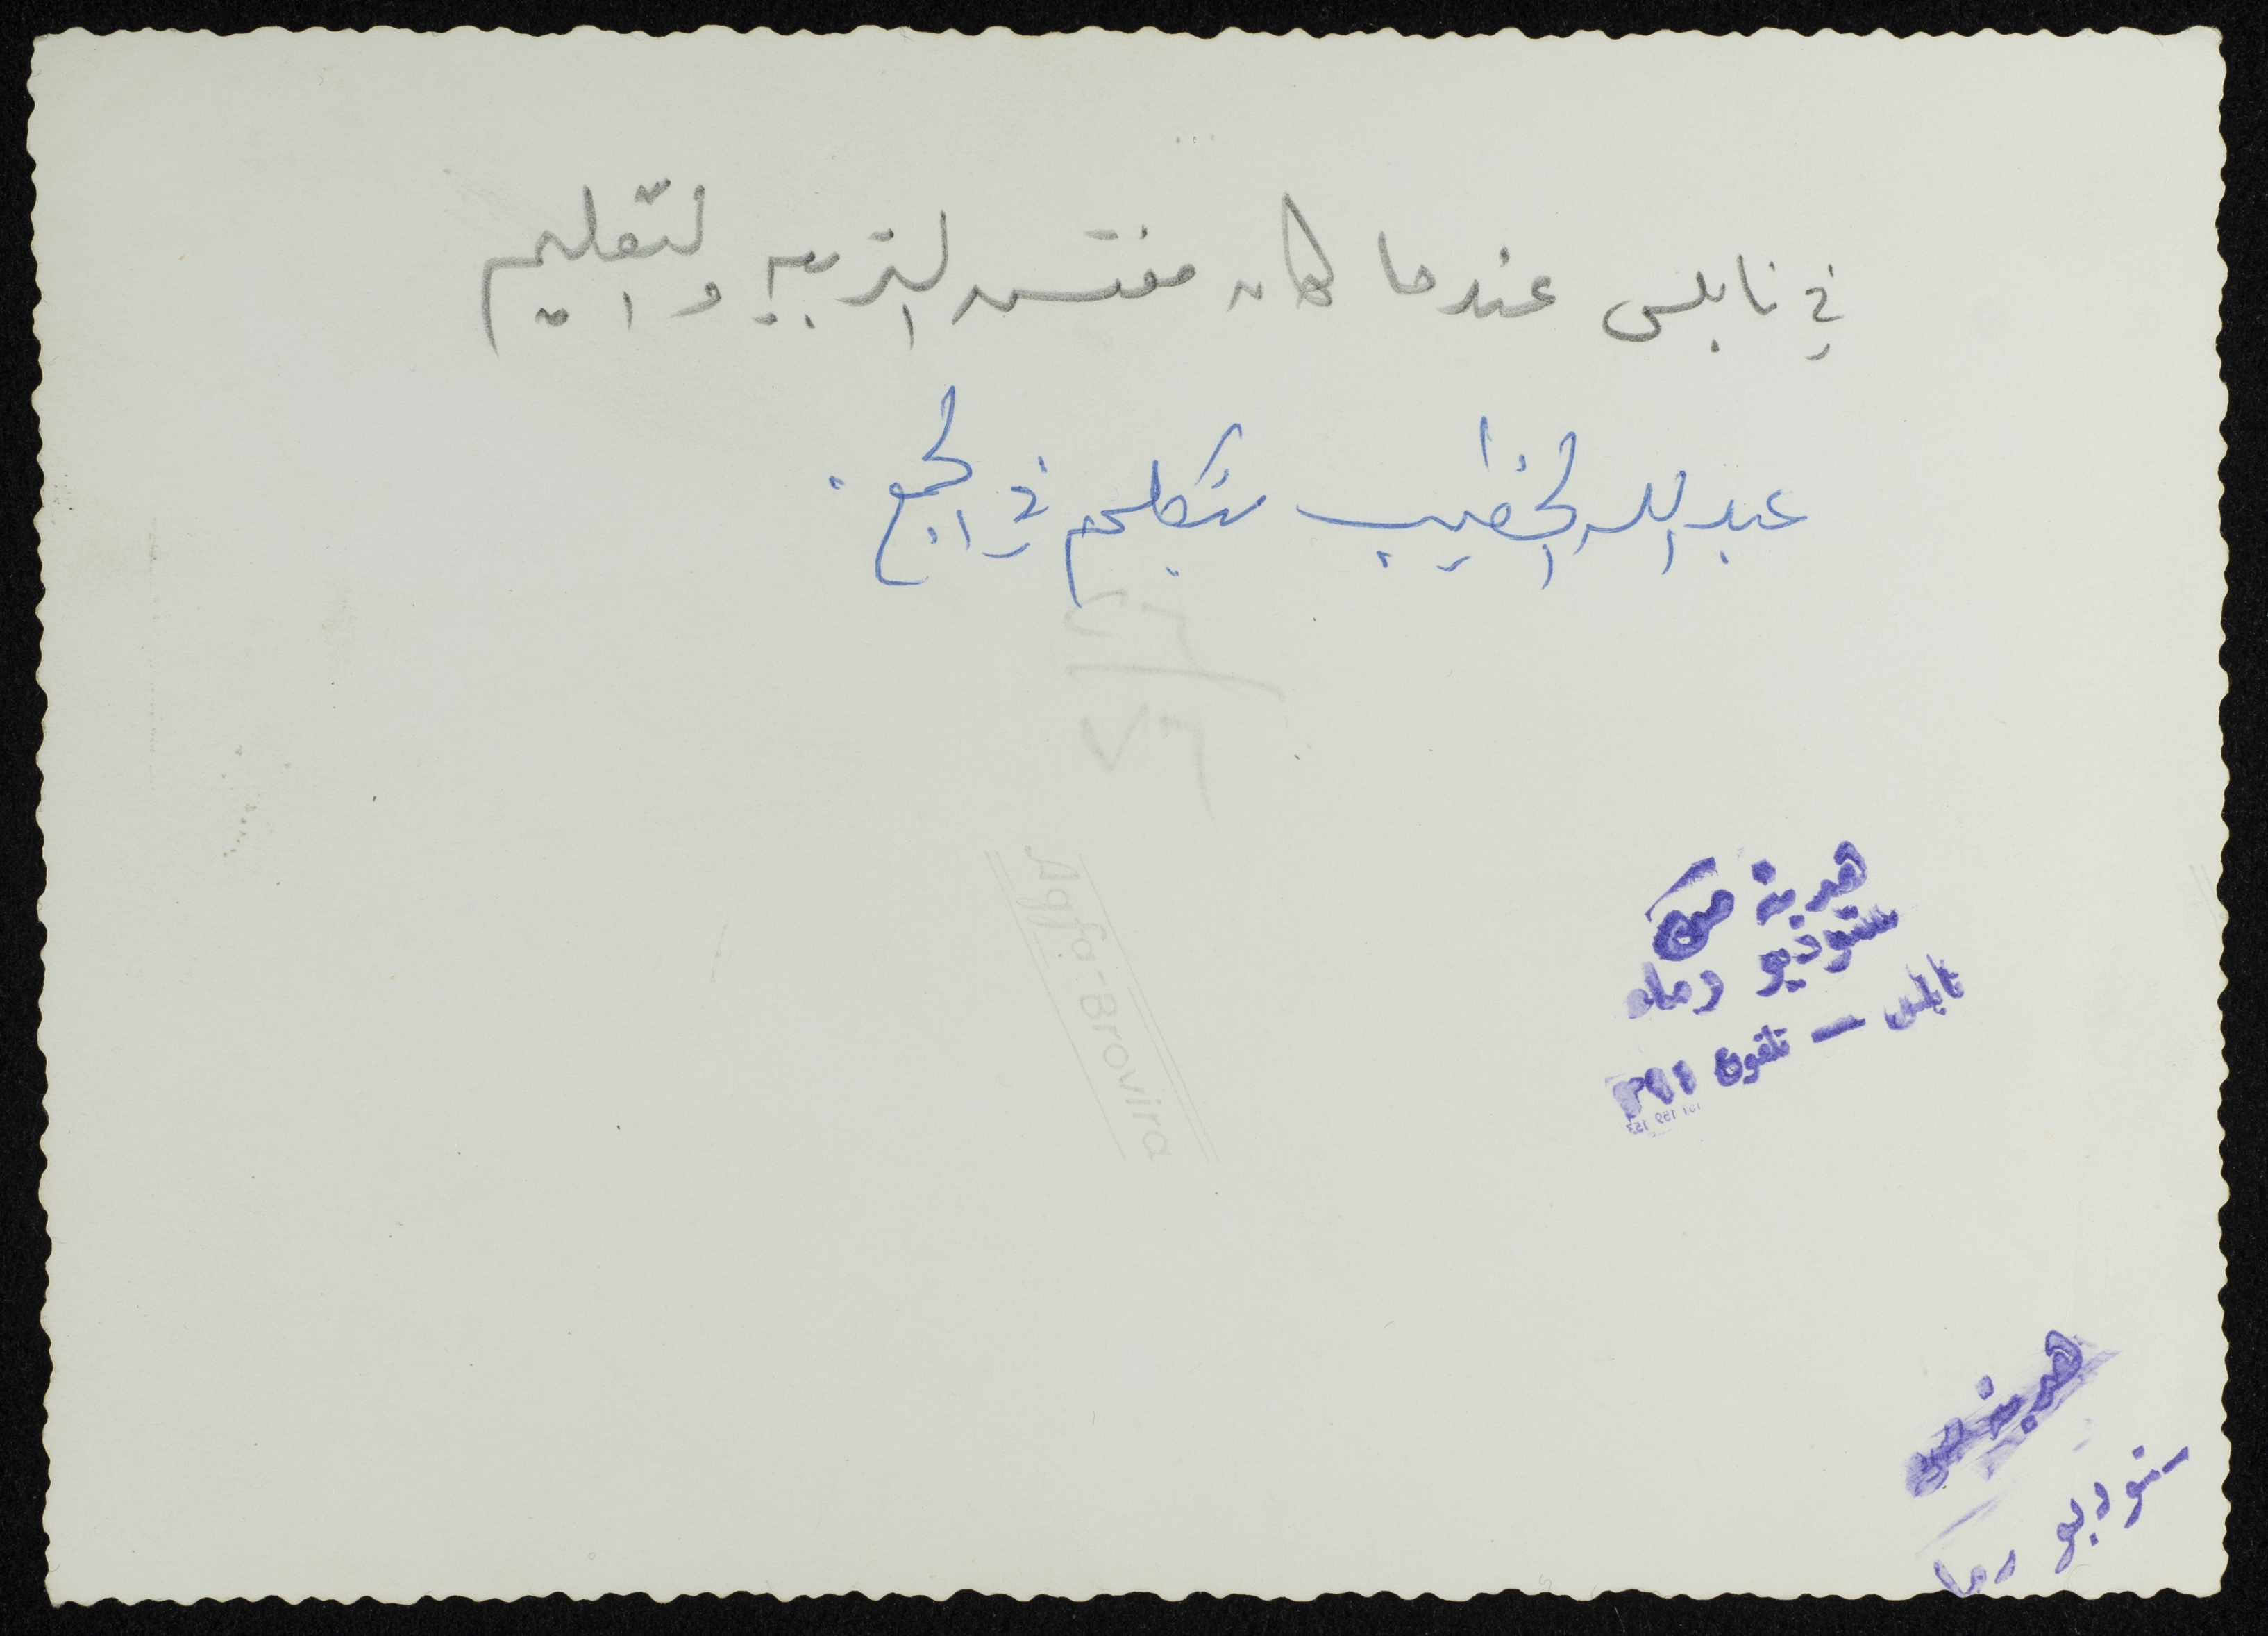 في نابلس عندما كان مفتش التربيه والتعليم
عبد الله الخطيب يتكلم في الجمع .
Agfa-Brovira
هدية من
ستوديو
نابلس – تلفون
هدية من
ستوديو